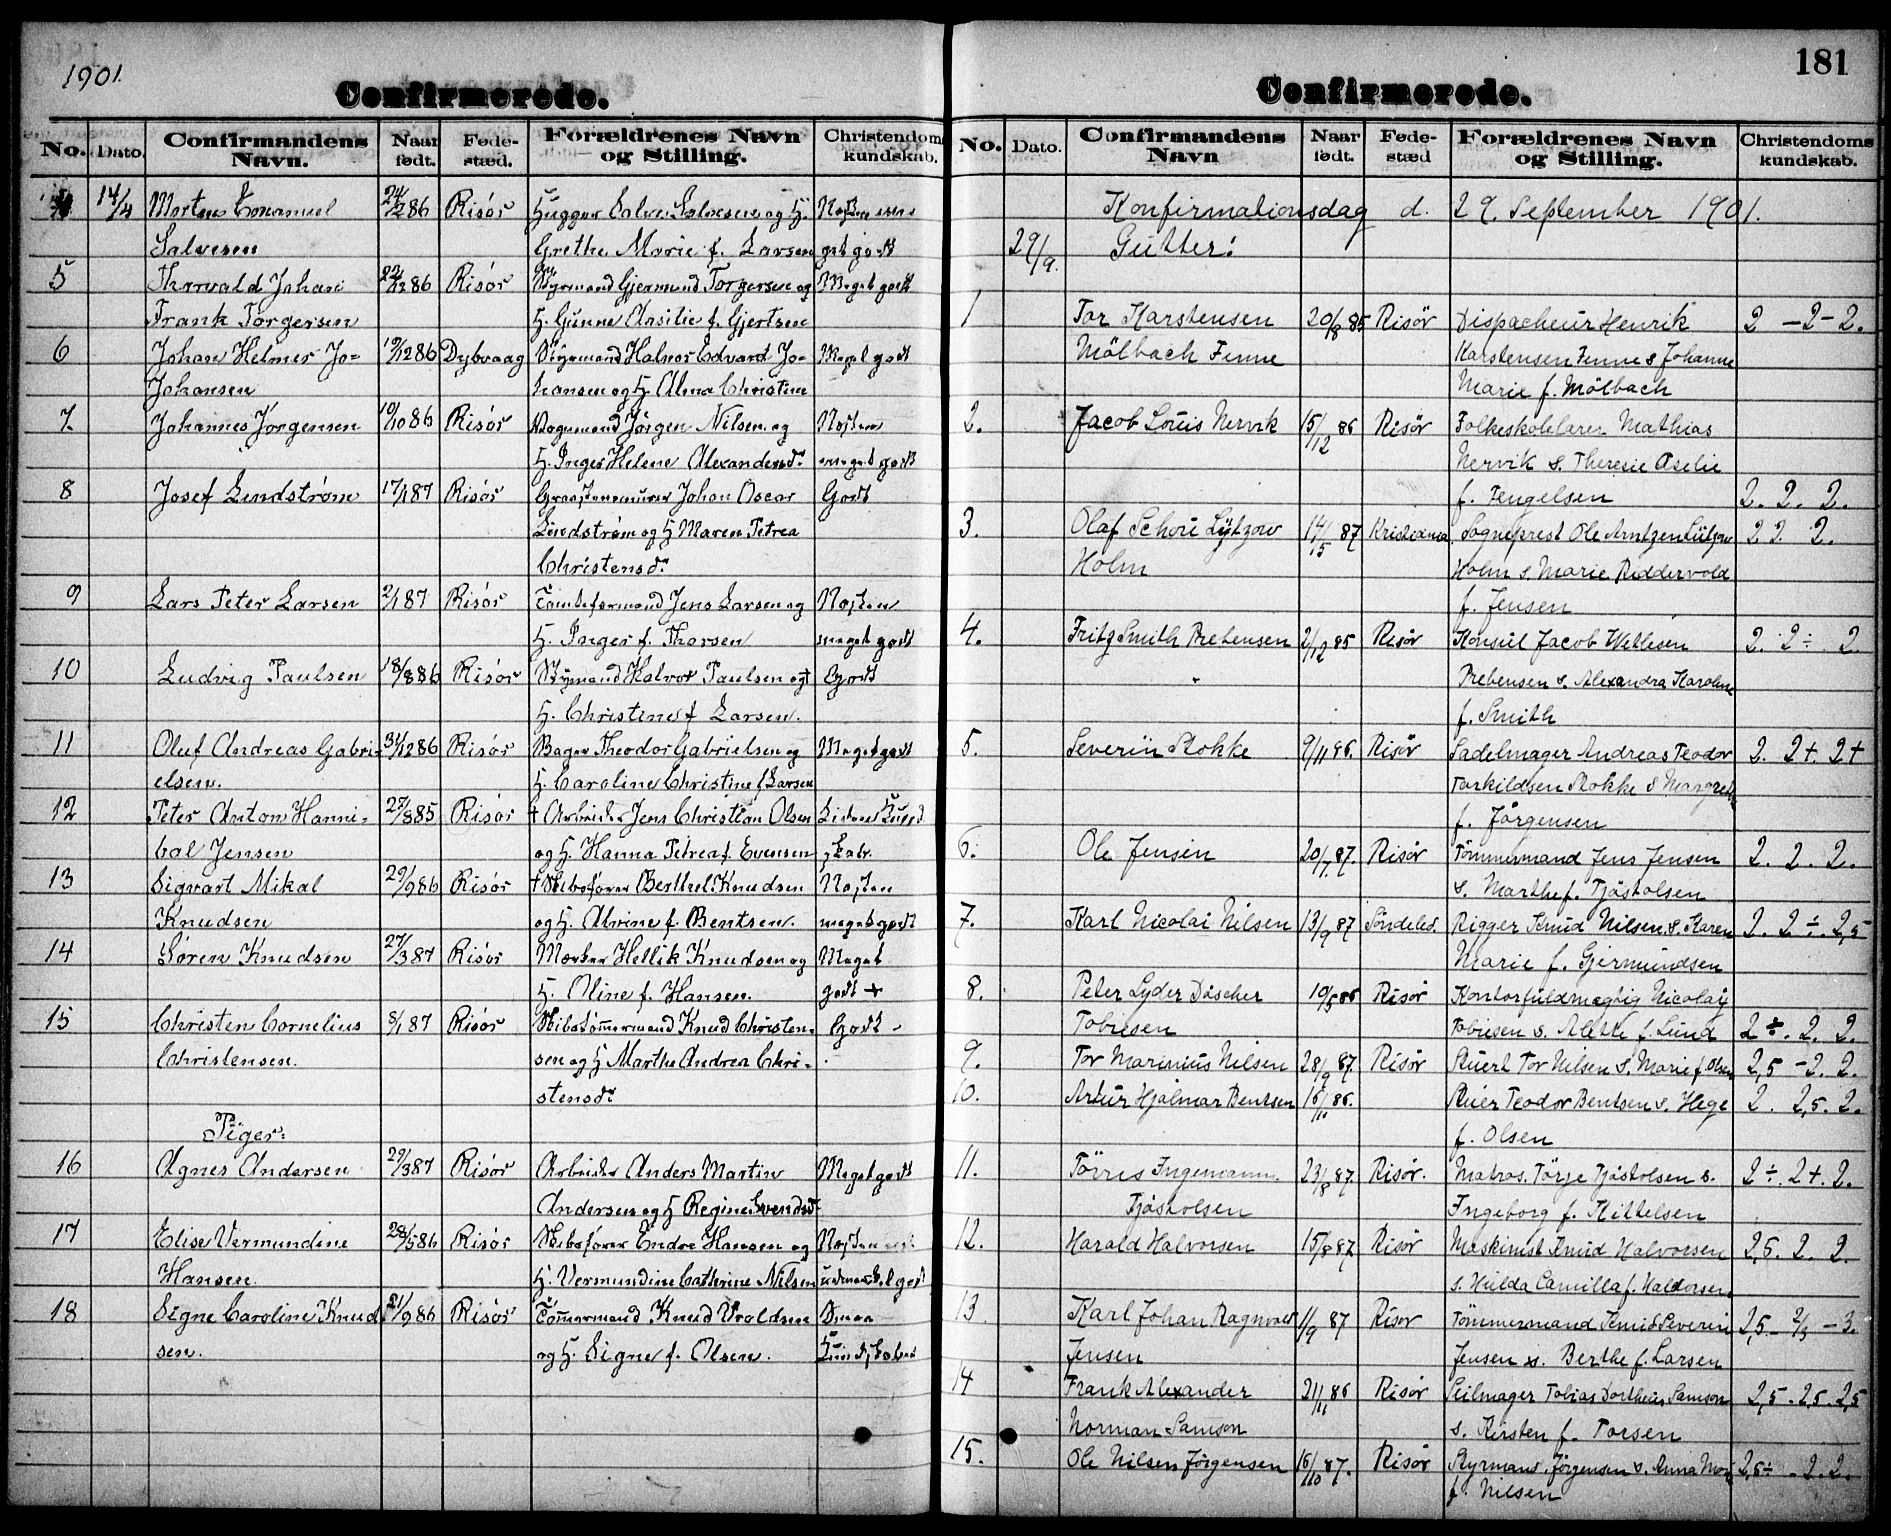 1901.
Confirmerede.
No. Dato. Confirmandens Navn. Naar født. Fødestæd. Forældrenes Navn og Stilling. Christendomskundskab.
4 14/4 Morten Emanuel 24/2 86 Risör Hugger Salve Salvesen og H. Næsten
Salvesen Grethe Marie f. Larsen godt
5 Thorvald Johan 22/12 86 Risör Styrmand Gjermund Torgersen og Meget godt
Frank Torgersen H. Gunne f. Gjertsen
6 Johan Helmer Jo= 19/12 86 Dybvaag Styrmand Halvor Edvard Jo= Meget godt
Johansen hansen og H. Alma Christine
7. Johannes Jörgensen 19/10 86 Risör Jörgen Nilsen og Næsten
H. Inger Helene Alexandersd. meget godt
8 Josef Lindström 17/1 87 Risör Johan Oscar Godt
Lindström og H. Maren Petrea
Christensd.
9 Lars Peter Larsen 2/1 87 Risör Tomteformand Jens Larsen og Næsten
H. Inger f. Thorsen meget godt
10 Ludvig Paulsen 18/8 86 Risör Styrmand Halvor Paulsen og Godt
H. Christine f Larsen.
11 Oluf Andreas Gabri- 31/12 86 Risör Bager Theodor Gabrielsen og Meget godt
elsen. H. Caroline Christine f Larsen
12 Peter Anton Hanni- 27/8 85 Risör † Arbeider Jens Christian Olsen Liden Kund
bal Jensen og H. Hanna Petrea f. Evensen skab.
13 Sigvart Mikal 29/9 86 Risör † Skibsfører Berthel Knudsen Næsten
Knudsen og H. Alvine f. Bentsen. meget godt
14 Sören Knudsen 27/3 87 Risör Hellik Knudsen og Meget
H. Oline f. Hansen. godt +
15 Christen Cornelius 8/1 87 Risör Skibstömmermand Knud Christen= Godt -
Christensen. sen og H Marthe Andrea Chri-
stensd.
Piger:
16 Agnes Andersen 29/3 87 Risör Arbeider Anders Martin Meget godt
Andersen og H Regine Svendsd.
17 Elise Vermundine 28/5 86 Risör Skibsfører Endre Hansen og Næsten
Hansen. H. Vermundine Cathrine Nilsen godt
18 Signe Caroline Knud 21/9 86 Risör Tömmermand Knud Knudsen Smaa
sen. og H. Signe f. Olsen. Kundskaber
181
Confirmerede.
No. Dato. Confirmandens Navn Naar født. Fødestæd Forældrenes Navn og Stilling. Christendomskundskab.
Konfirmationsdag d. 29. September 1901.
29/9. Gutter:
1 Tor Karstensen 20/8 85 Risör Dispacheur Henrik 2 - 2 - 2.
Mölbach Finne Karstensen Finne & Johanne
Marie f. Mölbach
2. Jacob Louis Nervik 15/12 86 Risör Folkeskolelærer Mathias
Nervik & Theresie Aselie
f. Tengelsen 2. 2. 2.
3. Olaf Schou Lützow 14/5 87 Kristiania. Sogneprest Ole Arntzen Lützow 2 2 2.
Holm Holm & Marie Riddervold
f. Jensen
4. Fritz Smith Prebensen 2/12 85 Risör Konsul Jacob Wetlesen 2. 2 ÷ 2.
Prebensen & Alexandra Karoline
f. Smith
5. Severin Stokke 9/11 86. Risör Sadelmager Andreas Teodor 2. 2+. 2+
Torkildsen Stokke & Margrethe
f. Jörgensen
6. Ole Jensen 20/7 87. Risör Tömmermand Jens Jensen 2. 2. 2.
& Marthe f. Tjöstolsen
7. Karl Nicolai Nilsen 13/9 87 Söndeled. Rigger Knud Nilsen & Karen 2. 2 ÷. 2,5
Marie f. Gjermundsen
8. Peter Lyder Döscher 19/5 86 Risör Kontorfuldmægtig Nicolay
Tobiesen Tobiesen & Alette f. Lund 2 ÷. 2. 2.
9. Tor Marinius Nilsen 28/9 87. Risör Stuert Tor Nilsen & Marie f Olsen 2,5 - 2. 2.
10. Artur Hjalmar Bentsen 16/11 86. Stuer Teodor Bentsen & Hege 2. 2,5. 2.
f. Olsen
11. Törres Ingemann 23/8 87. Risör. Matros. Törje Tjöstolsen & 2 ÷. 2+. 2.
Tjöstolsen Ingeborg f. Kittelsen
12. Harald Halvorsen 15/8 87 Risör Maskinist Knud Halvorsen 2,5. 2. 2.
& Hulda Camilla f. Haldorsen.
13 Karl Johan Ragnvald 1/9 87 Risör Tömmermand Knud Severin 2,5 - 2/3 - 3.
Jensen Jensen & Berthe f. Larsen
14 Frank Alexander 21/11 86 Risör Seilmager Tobias Dortheus Samson 2,5. 2,5. 2,5
Norman Samson & Kirsten f. Torsen
15. Ole Nilsen Jörgensen 16/10 87. Risör Styrmand Jörgensen & Anna 2,5 ÷ . 2. 2.
f. Nilsen